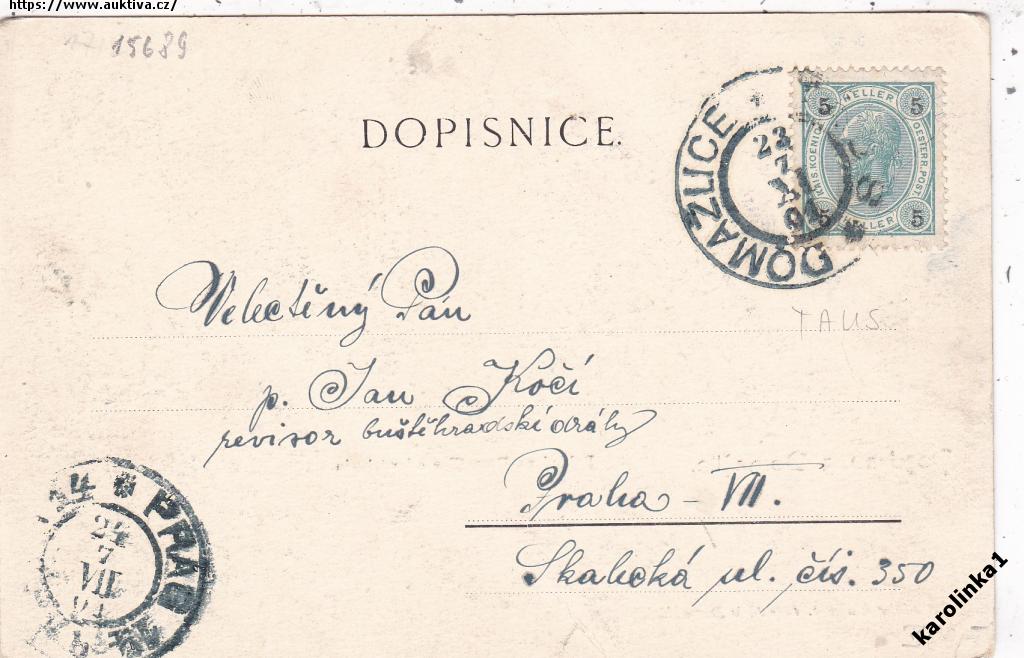 https://www.auktiva.cz/
15689
DOPISNICE.
DOMAŽLICE
23
7
5 HELLER 5
KAIS. KOENIGL. OESTERR. POST.
5 HELLER 5
TAUS
Velectěný Pán
p. Jan Kočí
revisor buštěhradskí dráhy
Praha – VII.
Skalecká ul. čís. 350
PRAG
24
7
VII
karolinka1